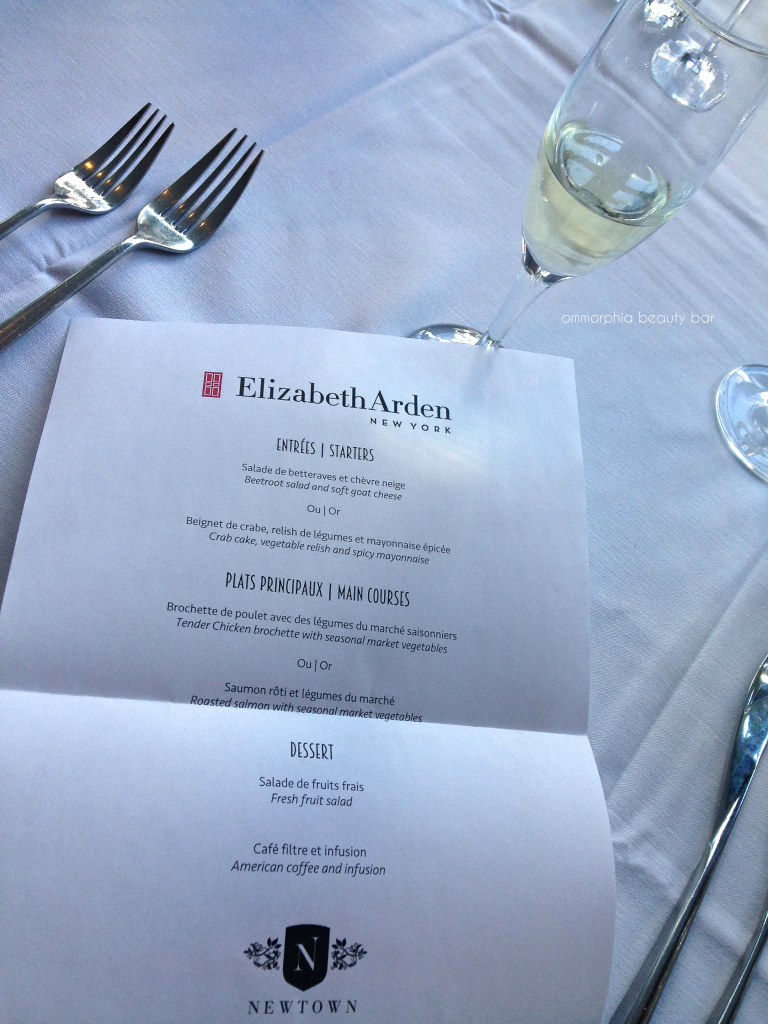 ommorphia beauty bar
Elizabeth Arden
NEW YORK
ENTRÉES | STARTERS
Salade de betteraves et chèvre neige
Beetroot salad and soft goat cheese
Ou | Or
Beignet de crabe, relish de légumes et mayonnaise épicée
Crab cake, vegetable relish and spicy mayonnaise
PLATS PRINCIPAUX | MAIN COURSES
Brochette de poulet avec des légumes du marché saisonniers
Tender Chicken brochette with seasonal market vegetables
Ou | Or
Saumon rôti et légumes du marché
Roasted salmon with seasonal market vegetables
DESSERT
Salade de fruits frais
Fresh fruit salad
Café filtre et infusion
American coffee and infusion
N
NEWTOWN